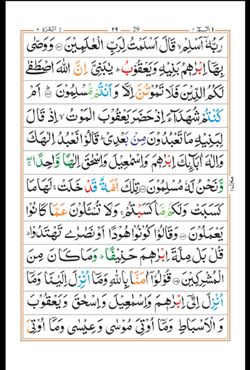 رَبُّهٗۤ اَسْلِمْ ۙ قَالَ اَسْلَمْتُ لِرَبِّ الْعٰلَمِيْنَ ۝ وَوَصّٰى
بِهَاۤ اِبْرٰهٖمُ بَنِيْهِ وَيَعْقُوْبُ ؕ يٰبَنِيَّ اِنَّ اللّٰهَ اصْطَفٰى
لَكُمُ الدِّيْنَ فَلَا تَمُوْتُنَّ اِلَّا وَاَنْتُمْ مُّسْلِمُوْنَ ۝ اَمْ
كُنْتُمْ شُهَدَآءَ اِذْ حَضَرَ يَعْقُوْبَ الْمَوْتُ ۙ اِذْ قَالَ
لِبَنِيْهِ مَا تَعْبُدُوْنَ مِنْۢ بَعْدِيْ ؕ قَالُوْا نَعْبُدُ اِلٰهَكَ
وَاِلٰهَ اٰبَآئِكَ اِبْرٰهٖمَ وَاِسْمٰعِيْلَ وَاِسْحٰقَ اِلٰهًا وَّاحِدًا ۖۚ
وَّنَحْنُ لَهٗ مُسْلِمُوْنَ ۝ تِلْكَ اُمَّةٌ قَدْ خَلَتْ ۚ لَهَا مَا
كَسَبَتْ وَلَكُمْ مَّا كَسَبْتُمْ ۚ وَلَا تُسْـَٔلُوْنَ عَمَّا كَانُوْا
يَعْمَلُوْنَ ۝ وَقَالُوْا كُوْنُوْا هُوْدًا اَوْ نَصٰرٰى تَهْتَدُوْا ؕ
قُلْ بَلْ مِلَّةَ اِبْرٰهٖمَ حَنِيْفًا ؕ وَمَا كَانَ مِنَ
الْمُشْرِكِيْنَ ۝ قُوْلُوْۤا اٰمَنَّا بِاللّٰهِ وَمَاۤ اُنْزِلَ اِلَيْنَا وَمَاۤ
اُنْزِلَ اِلٰۤى اِبْرٰهٖمَ وَاِسْمٰعِيْلَ وَاِسْحٰقَ وَيَعْقُوْبَ
وَالْاَسْبَاطِ وَمَاۤ اُوْتِيَ مُوْسٰى وَعِيْسٰى وَمَاۤ اُوْتِيَ